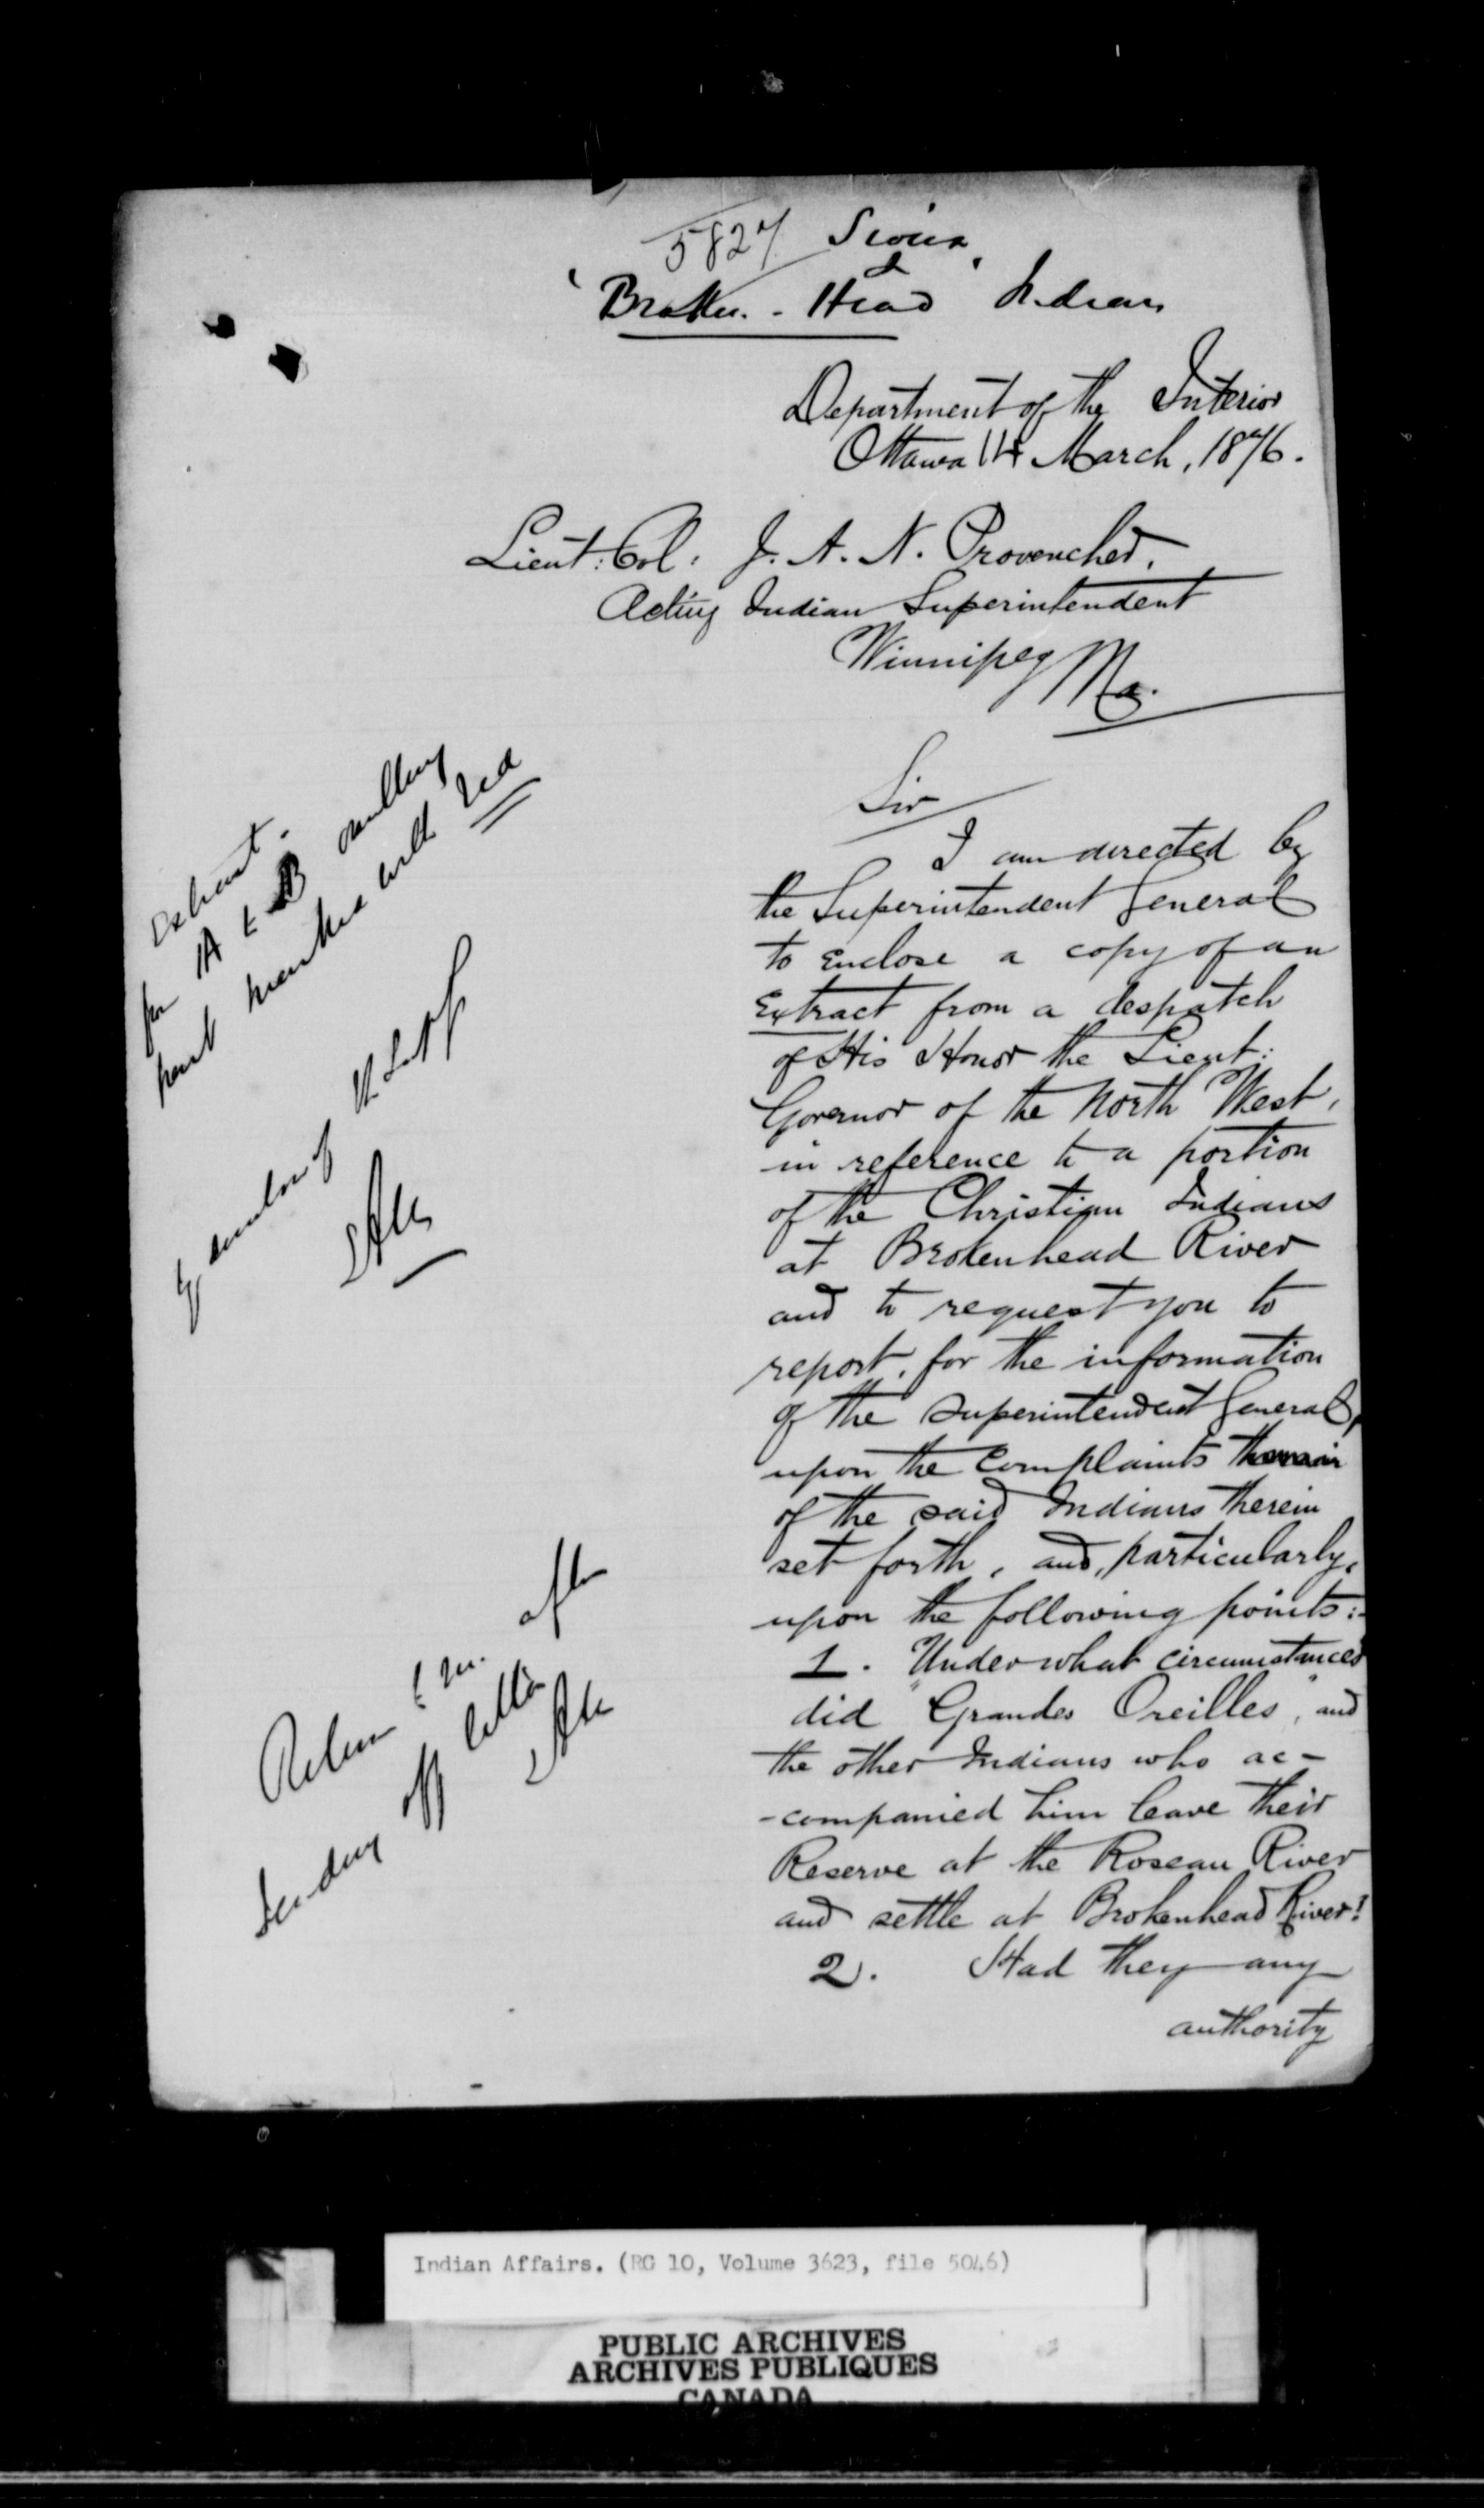 5827 Sioux
&
"Broken-Head" Indians
Department of the Interior
Ottawa 14 March, 1876.
Lieut: Col: J. A. N. Provencher.
Acting Indian Superintendent
Winnipeg Ma.
Sir
I am directed by
the Superintendent General
to enclose a copy of an
Extract from a despatch
of His Honor the Lieut:
Governor of the North West,
in reference to a portion
of the Christian Indians
at Brokenhead River
and to request you to
report, for the information
of the Superintendent General,
upon the complaints
of the said Indians therein
set forth, and, particularly,
upon the following points:-
1. Under what circumstances
did "Grandes Oreilles" and
the other Indians who ac-
-companied him leave their
Reserve at the Roseau River
and settle at Brokenhead River?
2. Had they any
authority
Extract.
for A to B omitting
part marked with red
Return to me after
sending off letter
Indian Affairs. (RG 10, Volume 3623, file 5046)
PUBLIC ARCHIVES
ARCHIVES PUBLIQUES
CANADA